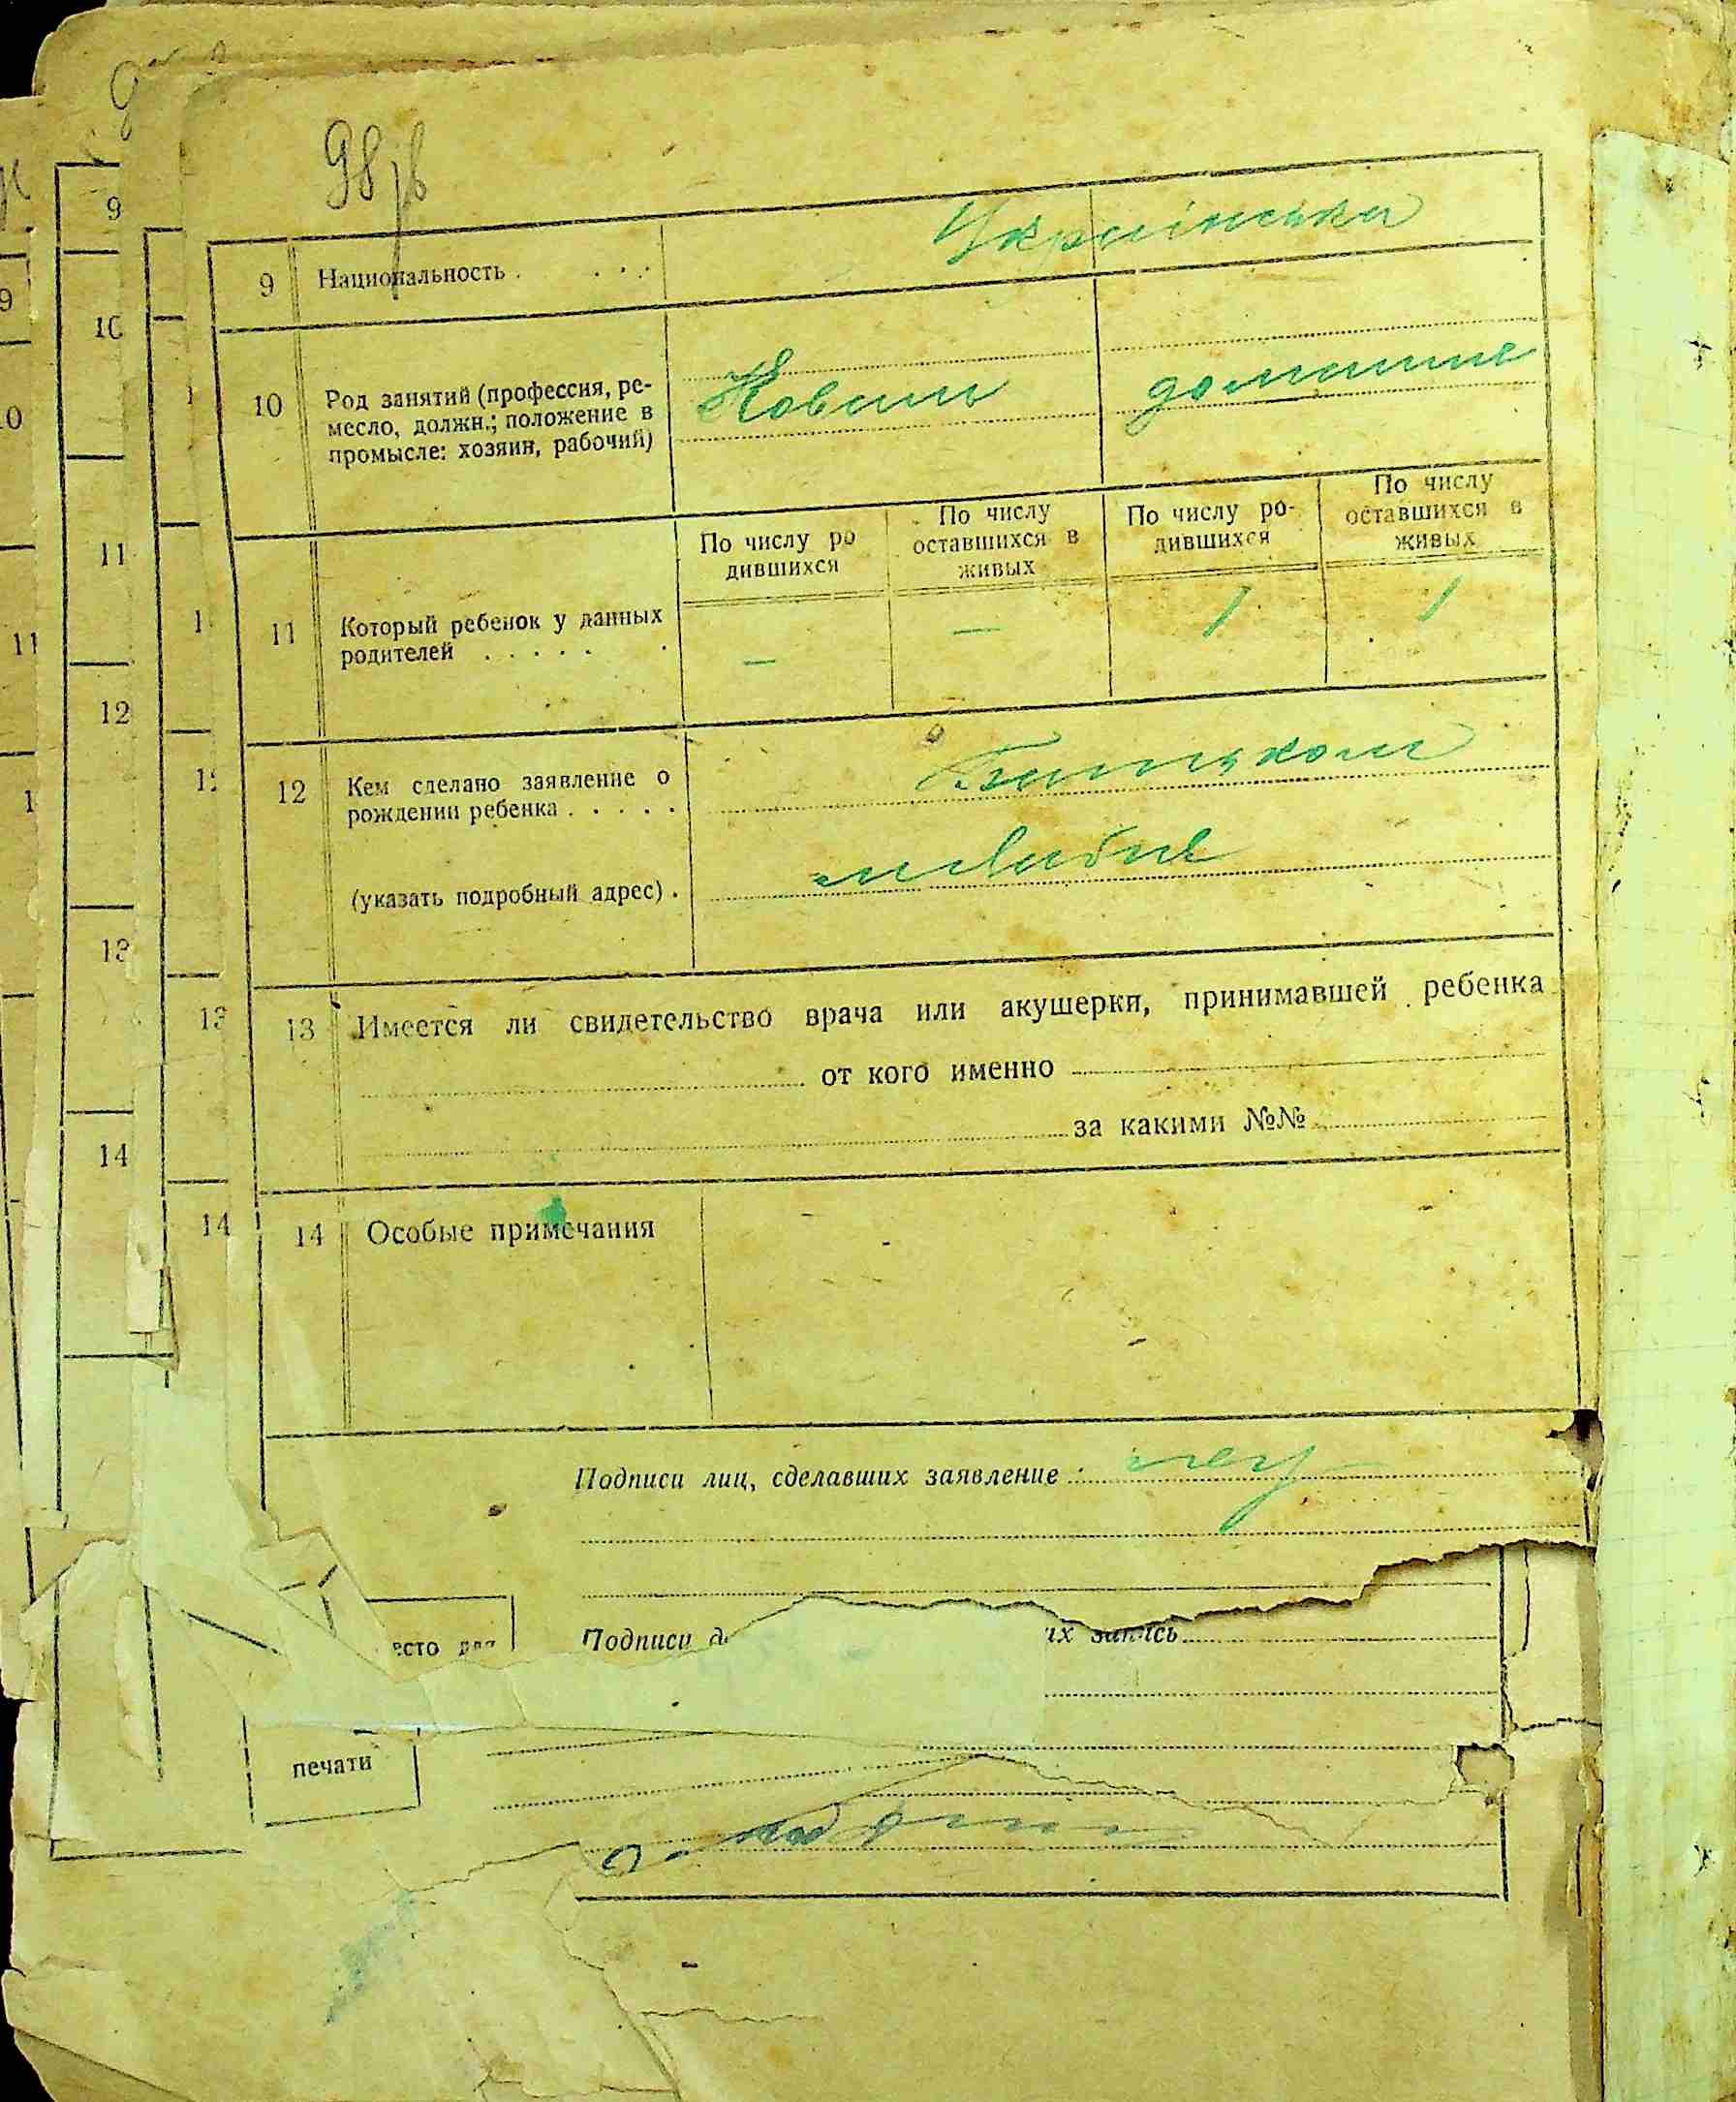 98 зв
9 Национальность . . . . Українська
10 Род занятий (профессия, ре-
месло, должн.; положение в
промысле: хозяин, рабочий)
Коваль домашне
11 Который ребенок у данных
родителей . . . . . .
По числу ро
дившихся
По числу
оставшихся в
живых
По числу ро-
дившихся
По числу
оставшихся в
живых
— — 1 1
12 Кем сделано заявление о
рождении ребенка . . . . . Батьком
(указать подробный адрес) .
13 Имеется ли свидетельство врача или акушерки, принимавшей ребенка
от кого именно
за какими №№
14 Особые примечания
Подписи лиц, сделавших заявление :
есто для
Подписи д
их запись
печати
9
10
11
12
13
14